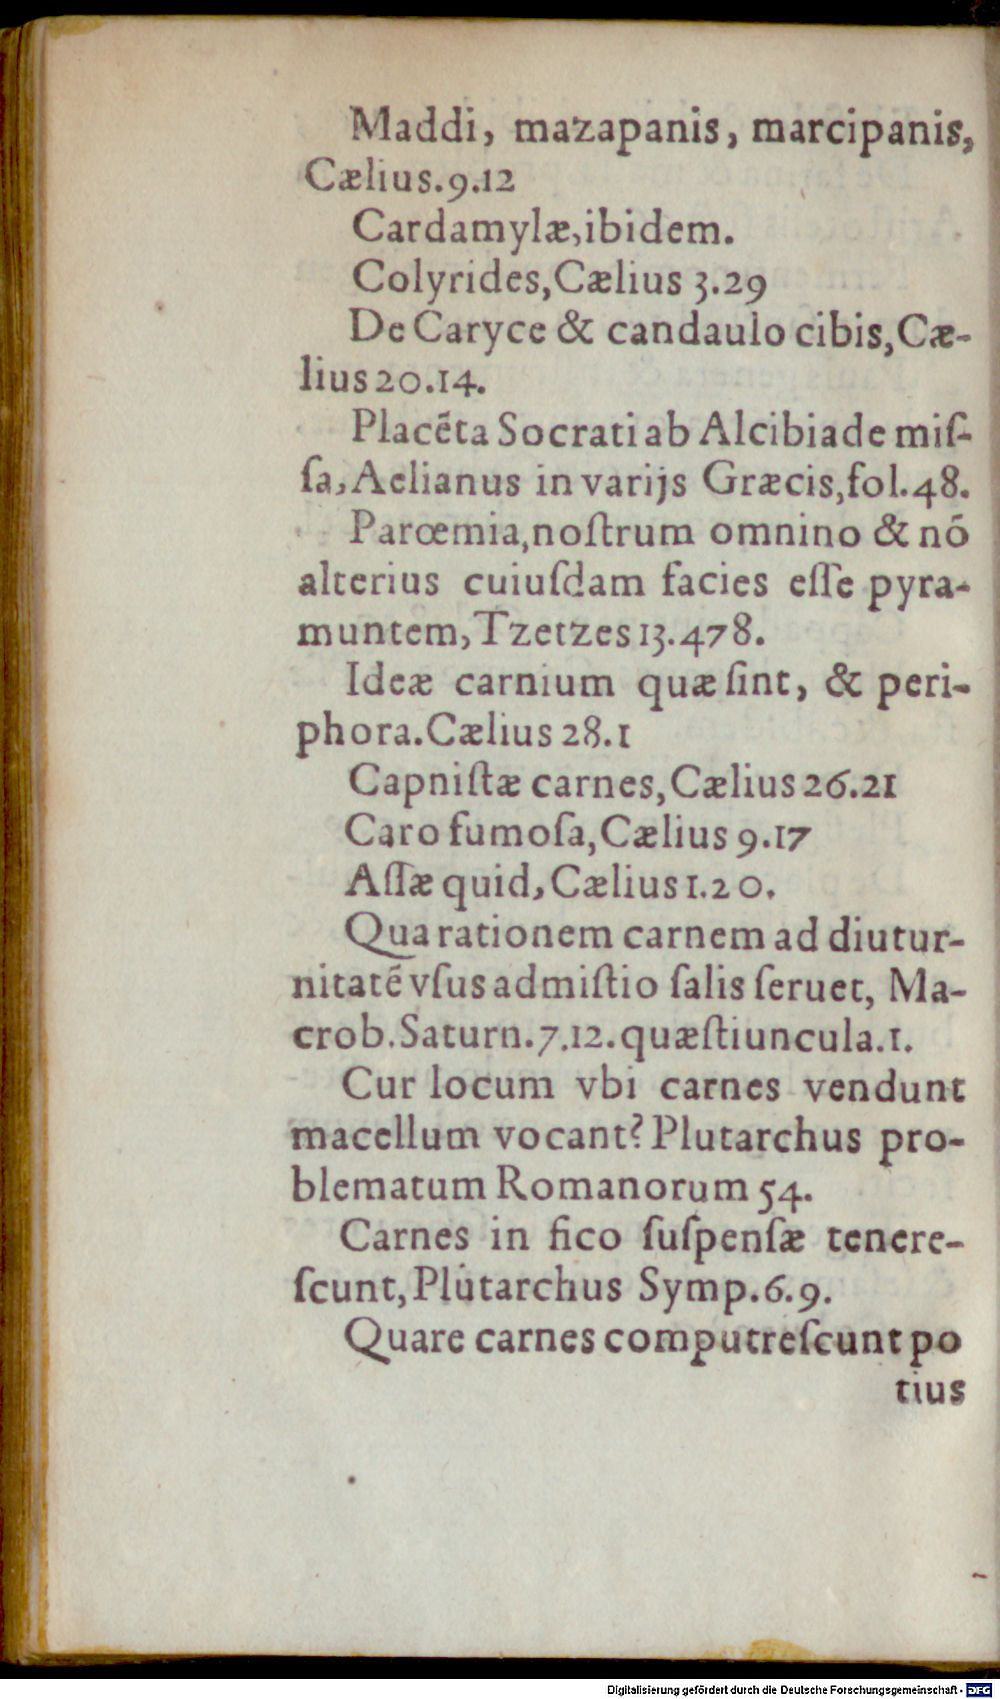 Maddi, mazapanis, marcipanis,
Cælius.9.12
Cardamylæ,ibidem.
Colyrides,Cælius 3.29
De Caryce & candaulo cibis,Cæ-
lius 20.14.
Placẽta Socrati ab Alcibiade miſ-
ſa,Aelianus in varijs Græcis,fol.48.
Parœmia,noſtrum omnino & nõ
alterius cuiuſdam facies eſſe pyra-
muntem,Tzetzes 13.478.
Ideæ carnium quæ ſint, & peri-
phora.Cælius 28.1
Capniſtæ carnes,Cælius 26.21
Caro fumoſa,Cælius 9.17
Aſſæ quid,Cælius 1.20.
Qua rationem carnem ad diutur-
nitatẽ vſus admiſtio ſalis ſeruet, Ma-
crob.Saturn.7.12.quæſtiuncula.1.
Cur locum vbi carnes vendunt
macellum vocant? Plutarchus pro-
blematum Romanorum 54.
Carnes in fico ſuſpenſæ tenere-
ſcunt,Plutarchus Symp.6.9.
Quare carnes computreſcunt po
tius
Digitalisierung gefördert durch die Deutsche Forschungsgemeinschaft - DFG